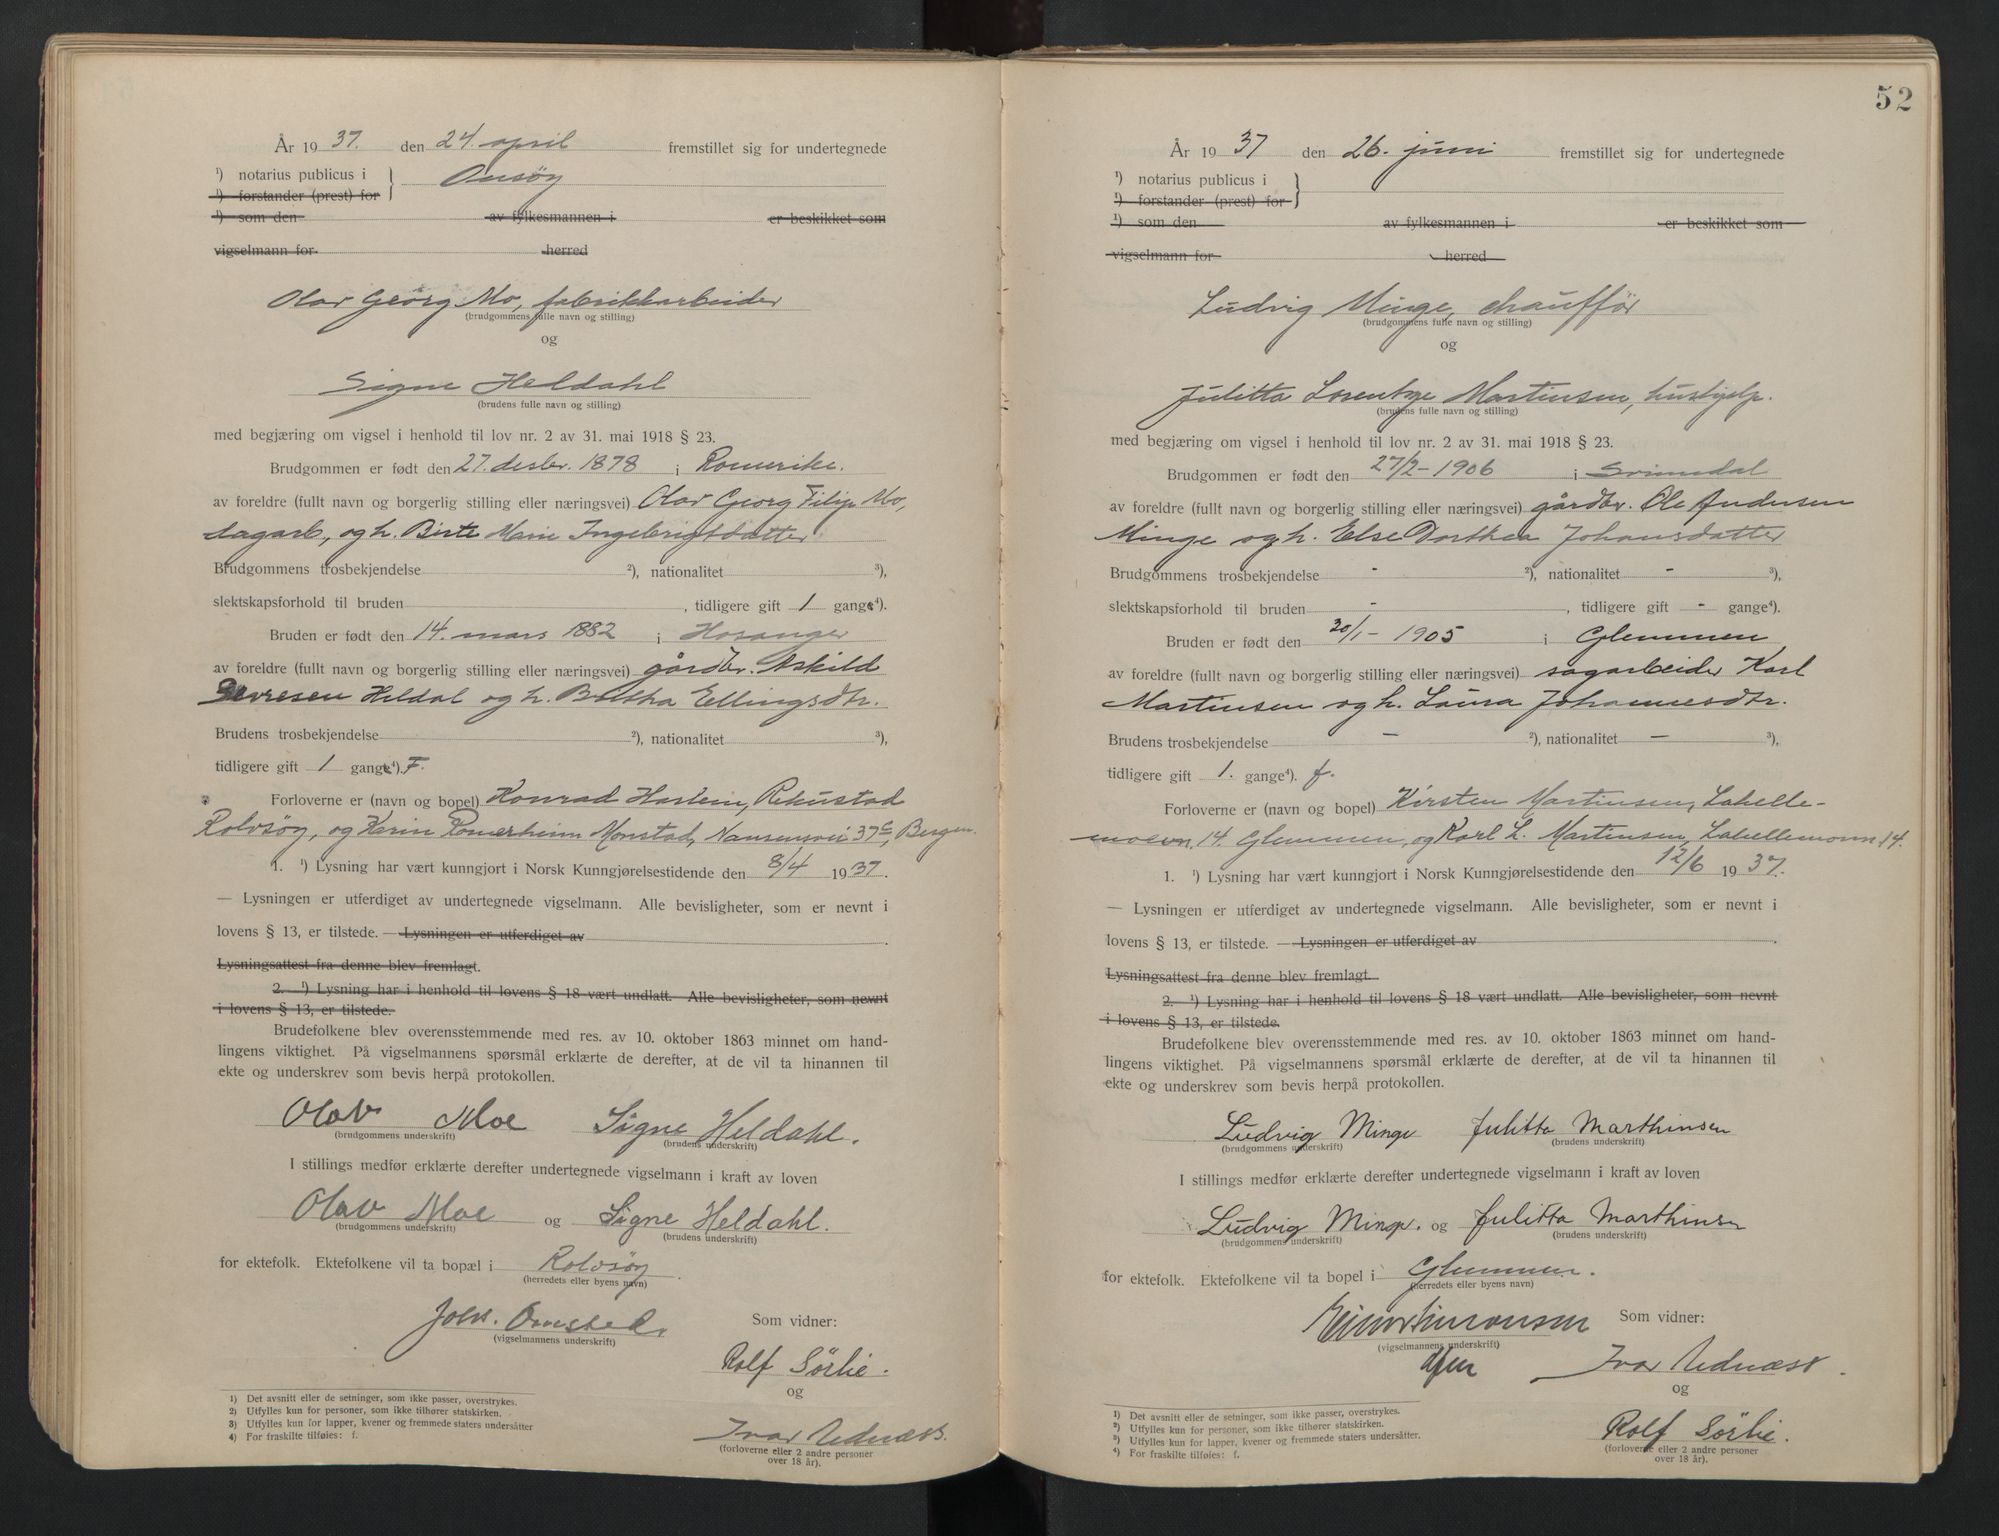 År 1937. den 24. april fremstillet sig for undertegnede
¹) notarius publicus i Onsøy
¹) forstander (prest) for
¹) som den av fylkesmannen i er beskikket som
vigselmann for herred
Olav Georg Mo, fabrikkarbeider
(brudgommens fulle navn og stilling)
og
Signe Heldahl
(brudens fulle navn og stilling)
med begjæring om vigsel i henhold til lov nr. 2 av 31. mai 1918 § 23.
Brudgommen er født den 27. desbr. 1878 i Romerike.
av foreldre (fullt navn og borgerlig stilling eller næringsvei) Olav Georg Filip Mo,
dagarb, og h. Birte Marie Ingebrigtsdatter
Brudgommens trosbekjendelse ²), nationalitet ³),
slektskapsforhold til bruden , tidligere gift 1 gange⁴).
Bruden er født den 14. mars 1882 i Hosanger
av foreldre (fullt navn og borgerlig stilling eller næringsvei) gårdbr. Askild
Heldal og h. Brita Ellingsdtr.
Brudens trosbekjendelse ²), nationalitet ³),
tidligere gift 1 gange⁴). F.
Forloverne er (navn og bopel) Konrad Harlem, Rekustad
Rolvsøy, og Karin Romerheim Monstad, Nansensvei 37c, Bergen.
1. ¹) Lysning har vært kunngjort i Norsk Kunngjørelsestidende den 8/4 1937.
— Lysningen er utferdiget av undertegnede vigselmann. Alle bevisligheter, som er nevnt i
lovens § 13, er tilstede. — Lysningen er utferdiget av
Lysningsattest fra denne blev fremlagt.
2. ¹) Lysning har i henhold til lovens § 18 vært undlatt. Alle bevisligheter, som nevnt
i lovens § 13, er tilstede.
Brudefolkene blev overensstemmende med res. av 10. oktober 1863 minnet om hand-
lingens viktighet. På vigselmannens spørsmål erklærte de derefter, at de vil ta hinannen til
ekte og underskrev som bevis herpå protokollen.
Olav Moe Signe Heldahl.
(brudgommens underskrift) (brudens underskrift)
I stillings medfør erklærte derefter undertegnede vigselmann i kraft av loven
Olav Moe og Signe Heldahl.
(brudgommens underskrift) (brudens underskrift)
for ektefolk. Ektefolkene vil ta bopæl i Rolvsøy
(herredets eller byens navn)
Johs. Omsted. Som vidner:
(vigselmannens underskrift)
Rolf Sørlie.
og
Ivar Udnæs.
(forloverne eller 2 andre personer
over 18 år).
1) Det avsnitt eller de setninger, som ikke passer, overstrykes.
2) Utfylles kun for personer, som ikke tilhører statskirken.
3) Utfylles kun for lapper, kvener og fremmede staters undersåtter
4) For fraskilte tilføies: f.
52
År 1937 den 26. juni fremstillet sig for undertegnede
¹) notarius publicus i
¹) forstander (prest) for
¹) som den av fylkesmannen i er beskikket som
vigselmann for herred
Ludvig Minge, chauffør
(brudgommens fulle navn og stilling)
og
Julitta Lorentze Martinsen, hushjelp.
(brudens fulle navn og stilling)
med begjæring om vigsel i henhold til lov nr. 2 av 31. mai 1918 § 23.
Brudgommen er født den 27/2 - 1906 i Svinndal
av foreldre (fullt navn og borgerlig stilling eller næringsvei) gårdbr. Ole Andersen
Minge og h. Else Dorthea Johansdatter
Brudgommens trosbekjendelse - ²), nationalitet - ³),
slektskapsforhold til bruden - , tidligere gift - gange⁴).
Bruden er født den 30/1 - 1905 i Glemmen
av foreldre (fullt navn og borgerlig stilling eller næringsvei) sagarbeider Karl
Martinsen og h. Laura Johannesdtr.
Brudens trosbekjendelse - ²), nationalitet - ³),
tidligere gift 1. gange⁴). f.
Forloverne er (navn og bopel) Kirsten Martinsen, Labelle-
moen, 14. Glemmen, og Karl L. Martinsen, Labellemoen 14.
1. ¹) Lysning har vært kunngjort i Norsk Kunngjørelsestidende den 12/6 1937.
— Lysningen er utferdiget av undertegnede vigselmann. Alle bevisligheter, som er nevnt i
lovens § 13, er tilstede. — Lysningen er utferdiget av
Lysningsattest fra denne blev fremlagt.
2. ¹) Lysning har i henhold til lovens § 18 vært undlatt. Alle bevisligheter, som nevnt
i lovens § 13, er tilstede.
Brudefolkene blev overensstemmende med res. av 10. oktober 1863 minnet om hand-
lingens viktighet. På vigselmannens spørsmål erklærte de derefter, at de vil ta hinannen til
ekte og underskrev som bevis herpå protokollen.
Ludvig Minge Julitta Marthinsen
(brudgommens underskrift) (brudens underskrift)
I stillings medfør erklærte derefter undertegnede vigselmann i kraft av loven
Ludvig Minge. og Julitta Marthinsen
(brudgommens underskrift) (brudens underskrift)
for ektefolk. Ektefolkene vil ta bopel i Glemmen.
(herredets eller byens navn)
Einar Simonsen Som vidner:
(vigselmannens underskrift)
Ivar Udnæs.
og
Rolf Sørlie.
(forloverne eller 2 andre personer
over 18 år).
¹) Det avsnitt eller de setninger, som ikke passer, overstrykes.
²) Utfylles kun for personer, som ikke tilhører statskirken.
³) Utfylles kun for lapper, kvener og fremmede staters undersåtter.
⁴) For fraskilte tilføies: f.